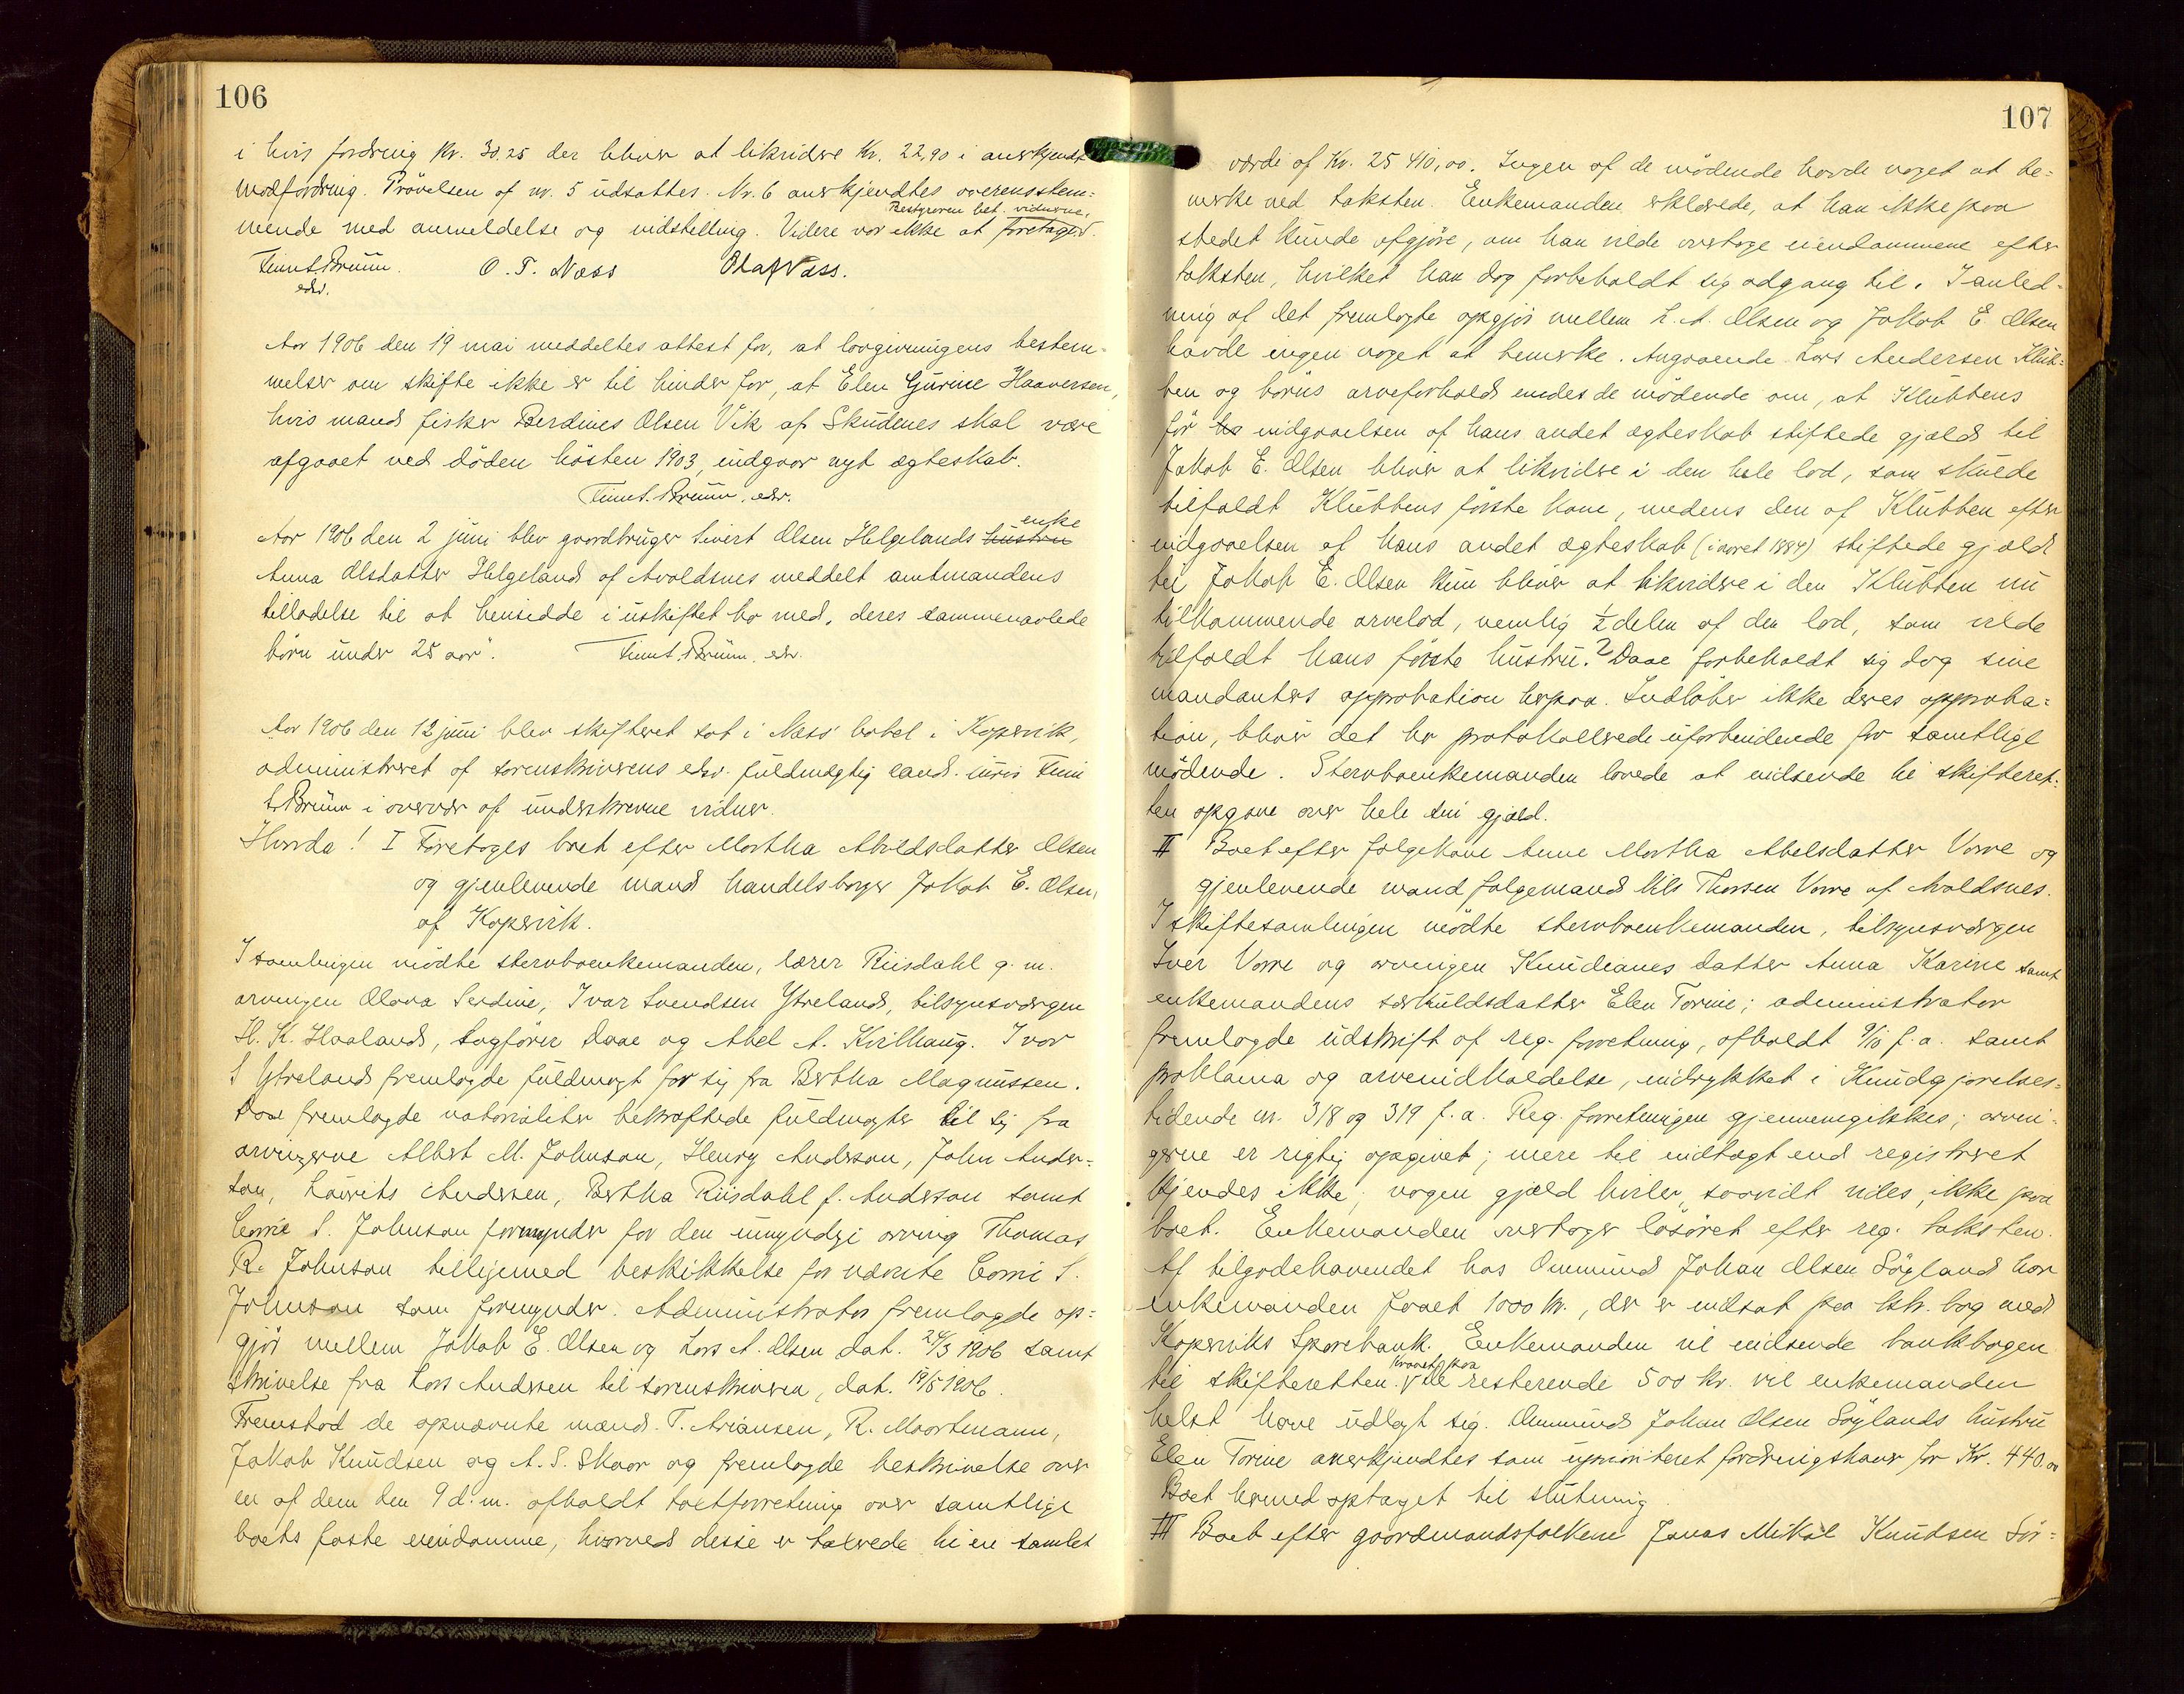 106
i hvis fordring Kr. 30,25 der bliver at likvidere Kr. 22,90 i anerkjendt
modfordring. Prövelsen af nr. 5 udsattes. Nr. 6 anerkjendtes overensstem=
Bestyreren bet. vidnerne.
mende med anmeldelse og indstilling. Videre var ikke at foretage.
Finn S. Brünn. O. T. Næss Olaf Næss.
edsv.
Aar 1906 den 19 mai meddeltes attest for, at lovgivningens bestem-
melser om skifte ikke er til hinder for, at Elen Gurine Haaversen,
hvis mand fisker Berdines Olsen Vik af Skudenes skal være
afgaaet ved döden hösten 1903, indgaar nyt ægteskab.
Finn S. Brünn, edsv.
enke
Aar 1906 den 2 juni blev gaardbruger Sivert Olsen Helgelands hustru
Anna Olsdatter Helgeland af Avaldsnes meddelt amtmandens
tilladelse til at hensidde i uskiftet bo med, deres sammenavlede
börn under 25 aar".  Finn S. Brünn. edsv.
Aar 1906 den 12 juni blev skifteret sat i Næss' hotel i Kopervik,
administreret af sorenskriverens edsv. fuldmægtig cand. juris Finn
S. Brünn i overvær af underskrevne vidner.
Hvorda! I Foretoges boet efter Martha Abelsdatter Olsen
og gjenlevende mand handelsborger Jakob E. Olsen,
af Kopervik.
I samlingen mödte stervboenkemanden, lærer Riisdahl q. m.
arvingen Olava Serdine, Ivar Svendsen Ytreland, tilsynsværgen
H. K. Haaland, sagförer Daae og Abel A. Kvilhaug. Ivar
S Ytreland fremlagde fuldmagt for sig fra Bertha Magnussen.
Daae fremlagde notarialiter bekræftede fuldmagter til sig fra
arvingerne Albert M. Johnson, Henry Anderson, John Ander=
son, Laurits Andersen, Bertha Riisdahl f. Anderson samt
Cornie S. Johnson formynder for den umyndige arving Thomas
R. Johnson tilligemed beskikkelse for nævnte Corni S.
Johnson som formynder. Administrator fremlagde op=
gjör mellem Jakob E. Olsen og Lars A. Olsen dat. 24/3 1906 samt
skrivelse fra Lars Andersen til sorenskriveren, dat. 19/5 1906.
Fremstod de opnævnte mænd T. Ariansen, R. Moortmann,
Jakob Knudsen og A. S. Skaar og fremlagde beskrivelse over
en af dem den 9 d. m. afholdt taxtforretning over samtlige
boets faste eiendomme, hvorved disse er taxerede til en samlet
107
værdi af Kr. 25 410,00. Ingen af de mödende havde noget at be=
merke ved taksten. Enkemanden erklærede, at han ikke paa
stedet kunde afgjöre, om han vilde overtage eiendommene efter
taksten, hvilket han dog forbeholdt sig adgang til. I anled-
ning af det fremlagte opgjör mellem L. A. Olsen og Jakob E. Olsen
havde ingen noget at bemerke. Angaaende Lars Andersen Klub=
ben og börns arveforhold enedes de mödende om, at Klubbens
för ha indgaaelsen af hans andet ægteskab stiftede gjæld til
Jakob E. Olsen bliver at likvidere i den hele lod, som skulde
tilfaldt Klubbens förste kone, medens den af Klubben efter
indgaaelsen af hans andet ægteskab (i aaret 1884) stiftede gjæld
til Jakob E. Olsen kun bliver at likvidere i den Klubben nu
tilkommende arvelod, nemlig ½delen af den lod, som vilde
tilfaldt hans förste hustru. Daae forbeholdt sig dog sine
mandanters approbation herpaa. Indlöber ikke deres approba=
tion, bliver det her protokollerede uforbindende for samtlige
mödende. Stervboenkemanden lovede at indsende til skifteret=
ten opgave over hele sin gjæld.
II Boet efter folgekone Anne Martha Abelsdatter Vorre og
gjenlevende mand folgemand Nils Thorsen Vorre af Avaldsnes.
I skiftesamlingen mödte stervboenkemanden, tilsynsværgen
Iver Vorre og arvingen Knudianes datter Anna Karine samt
enkemandens særkuldsdatter Elen Torine; administrator
fremlagde udskrift af reg. forretning, afholdt 9/10 f. a. samt
proklama og arveindkaldelse, indrykket i Kundgjörelses=
tidende nr. 318 og 319 f. a. Reg. forretningen gjennemgikkes; arvin=
gerne er rigtig opgivet; mere til indtægt end registreret
kjendes ikke; nogen gjæld hviler, saavidt vides, ikke paa
boet. Enkemanden overtager lösöret efter reg. taksten.
Af tilgodehavendet hos Ommund Johan Olsen Sögland har
enkemanden faaet 1000 kr., der er indsat paa ktr. bog med
Kopervik's Sparebank. Enkemanden vil indsende bankbogen
kravet paa
til skifteretten. de resterende 500 kr. vil enkemanden
helst have udlagt sig. Ommund Johan Olsen Söglands hustru
Elen Torine anerkjendtes som uprioriteret fordringshaver for Kr. 440.00
Boet hermed optaget til slutning.
III Boet efter gaardmandsfolkene Jonas Mikal Knudsen Sör=